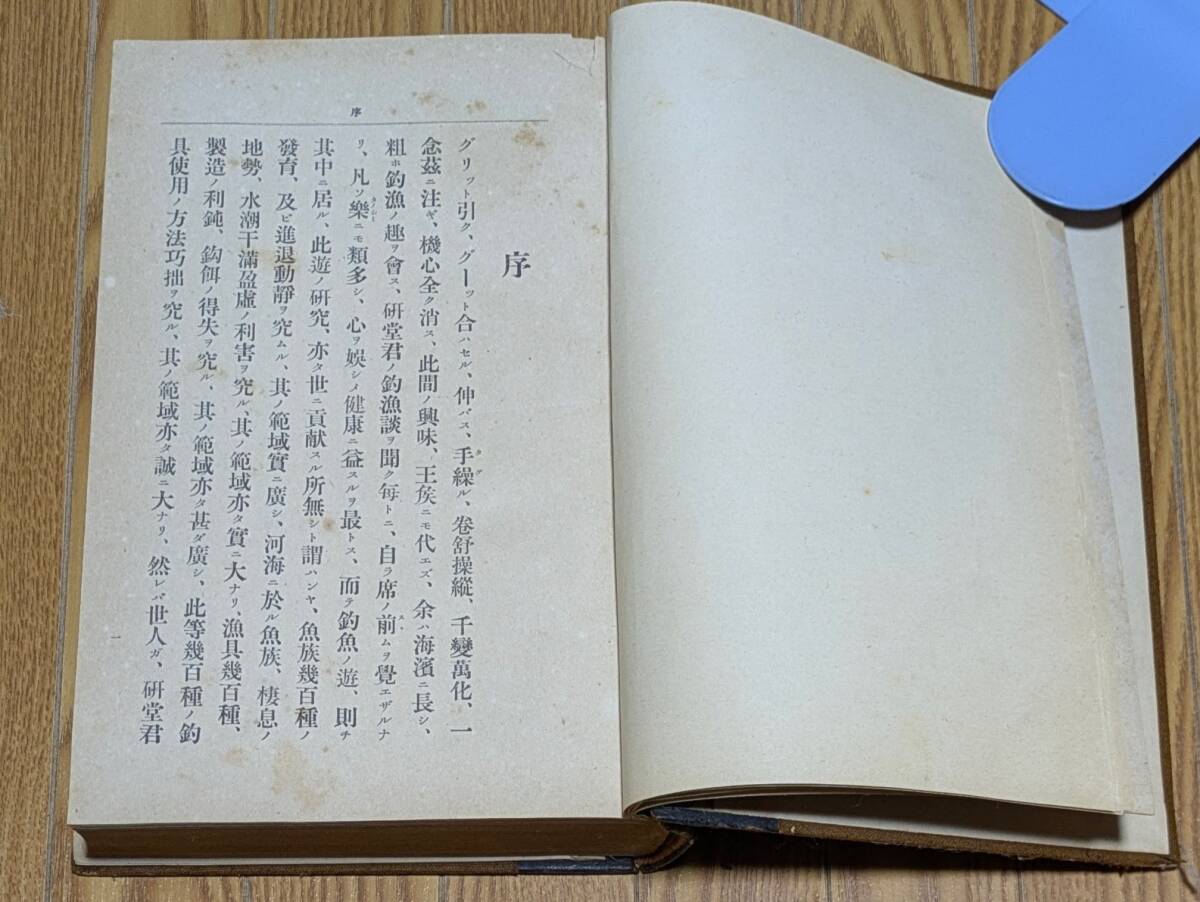 序
序
グリット引ク、グーット合ハセル、伸バス、手繰ル、卷舒操縱、千變萬化、一
念茲ニ注ギ、機心全ク消ス、此間ノ興味、王矦ニモ代エズ、余ハ海濱ニ長シ、
粗ホ釣漁ノ趣ヲ會ス、研堂君ノ釣漁談ヲ聞ク每トニ、自ラ席ノ前ムヲ覺エザルナ
リ、凡ソ樂ニモ類多シ、心ヲ娯シメ健康ニ益スルヲ最トス、而テ釣魚ノ遊、則チ
其中ニ居ル、此遊ノ硏究、亦タ世ニ貢献スル所無シト謂ハンヤ、魚族幾百種ノ
發育、及ビ進退動靜ヲ究ムル、其ノ範域實ニ廣シ、河海ニ於ル魚族、棲息ノ
地勢、水潮干滿盈虛ノ利害ヲ究ル、其ノ範域亦タ實ニ大ナリ、漁具幾百種、
製造ノ利鈍、鈎餌ノ得失ヲ究ル、其ノ範域亦タ甚ダ廣シ、此等幾百種ノ釣
具使用ノ方法巧拙ヲ究ル、其ノ範域亦タ誠ニ大ナリ、然レバ世人ガ、硏堂君
一